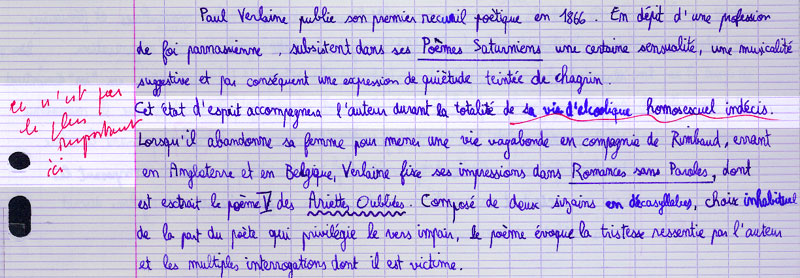 Paul Verlaine publie son premier recueil poétique en 1866. En dépit d'une profession
de foi parnassienne, subsistent dans ses Poèmes Saturniens une certaine sensualité, une musicalité
suggestive et par conséquent une expression de quiétude teintée de chagrin.
Cet état d'esprit accompagnera l'auteur durant la totalité de sa vie d'alcoolique homosexuel indécis.
Lorsqu'il abandonne sa femme pour mener une vie vagabonde en compagnie de Rimbaud, errant
en Angleterre et en Belgique, Verlaine fixe ses impressions dans Romances sans Paroles, dont
est extrait le poème V des Ariettes Oubliées. Composé de deux sizains en décasyllabes, choix inhabituel
de la part du poète qui privilégie le vers impair, le poème évoque la tristesse ressentie par l'auteur
et les multiples interrogations dont il est victime.
ce n'est pas
le plus
important
ici